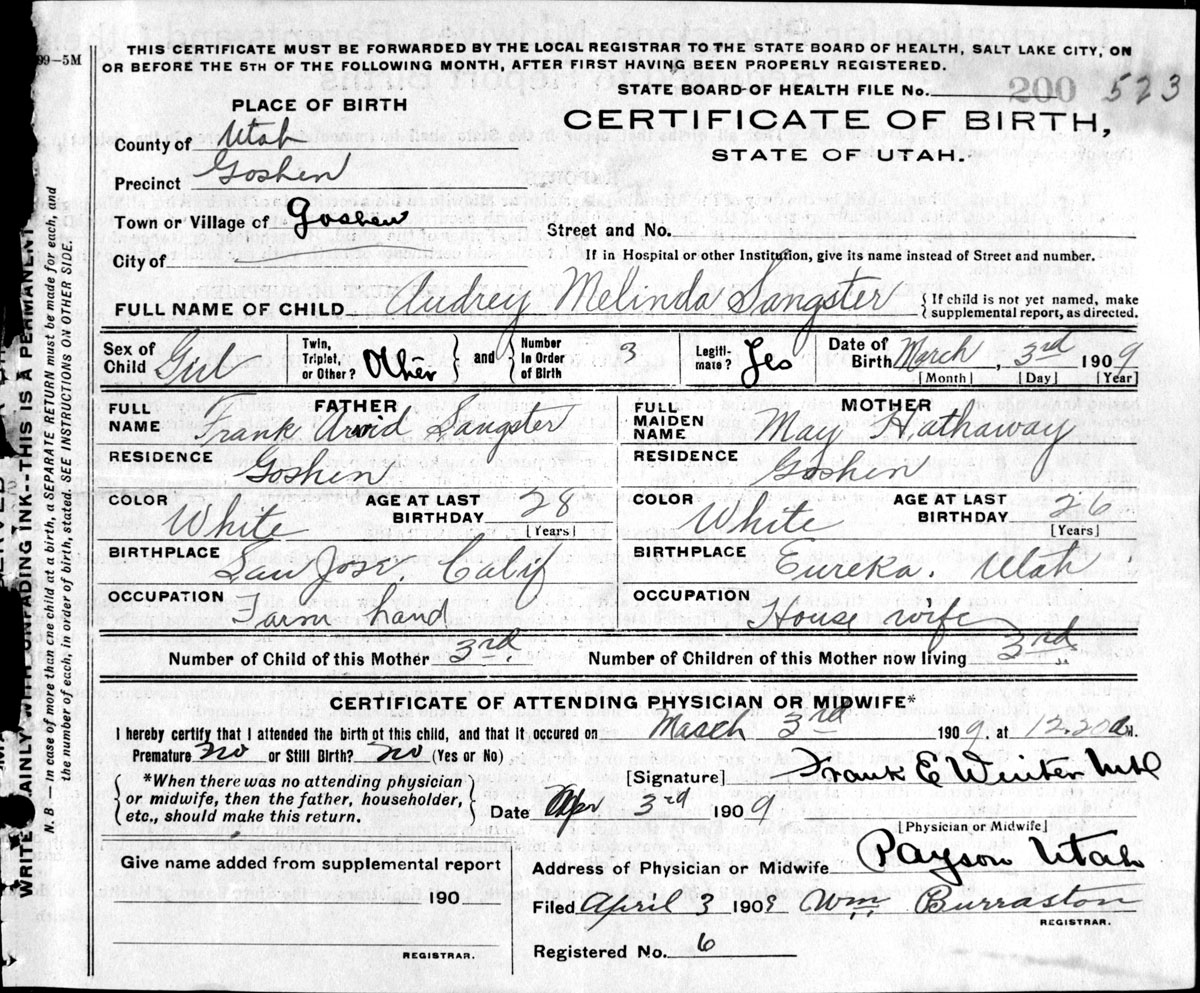 99–5M
THIS CERTIFICATE MUST BE FORWARDED BY THE LOCAL REGISTRAR TO THE STATE BOARD OF HEALTH, SALT LAKE CITY, ON
OR BEFORE THE 5TH OF THE FOLLOWING MONTH, AFTER FIRST HAVING BEEN PROPERLY REGISTERED.
STATE BOARD OF HEALTH FILE No. 200 523
PLACE OF BIRTH
CERTIFICATE OF BIRTH,
STATE OF UTAH.
County of Utah
Precinct Goshen
Town or Village of Goshen
Street and No.
City of
If in Hospital or other Institution, give its name instead of Street and number.
FULL NAME OF CHILD Audrey Melinda Sangster { If child is not yet named, make
supplemental report, as directed.
Sex of Child Girl Twin, Triplet, or Other? Other } and { Number in Order of Birth 3 Legitimate? Yes Date of Birth March, 3rd 1909
[Month] [Day] [Year]
FATHER MOTHER
FULL NAME Frank Arvid Sangster FULL MAIDEN NAME May Hathaway
RESIDENCE Goshen RESIDENCE Goshen
COLOR White AGE AT LAST BIRTHDAY 28 [Years] COLOR White AGE AT LAST BIRTHDAY 26 [Years]
BIRTHPLACE San Jose. Calif BIRTHPLACE Eureka. Utah
OCCUPATION Farm hand OCCUPATION House wife
Number of Child of this Mother 3rd. Number of Children of this Mother now living 3rd
CERTIFICATE OF ATTENDING PHYSICIAN OR MIDWIFE*
I hereby certify that I attended the birth of this child, and that it occured on March 3rd 1909. at 12.20 a M.
Premature? no or Still Birth? no (Yes or No)
*When there was no attending physician
or midwife, then the father, householder,
etc., should make this return.
[Signature] Frank E Winter
Date Apr 3rd 1909
[Physician or Midwife]
Give name added from supplemental report
190
REGISTRAR.
Address of Physician or Midwife Payson Utah
Filed April 3 1909 Wm Burraston
REGISTRAR.
Registered No. 6
WRITE PLAINLY WITH UNFADING INK--THIS IS A PERMANENT
N. B.—In case of more than one child at a birth, a SEPARATE RETURN must be made for each, and
the number of each, in order of birth, stated. SEE INSTRUCTIONS ON OTHER SIDE.